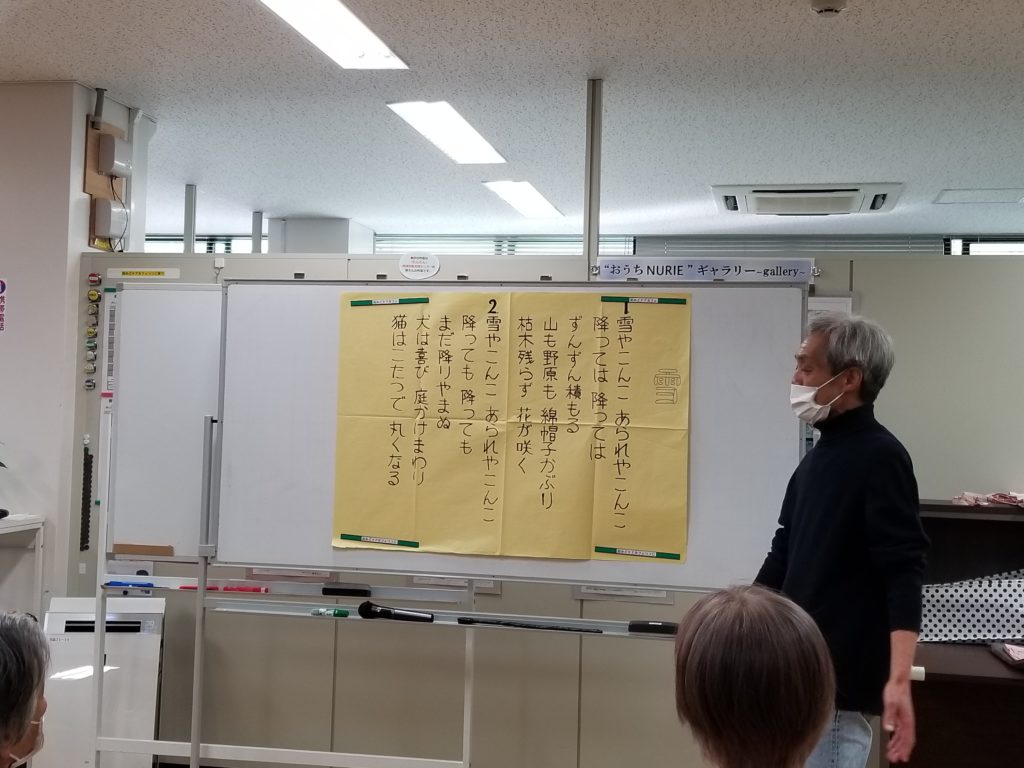 “おうちNURIE”ギャラリー~gallery~
雪
1
雪やこんこ あられやこんこ
降っては 降っては
ずんずん積もる
山も野原も 綿帽子かぶり
枯木残らず 花が咲く
2
雪やこんこ あられやこんこ
降っても 降っても
まだ降りやまぬ
犬は喜び 庭かけまわり
猫はこたつで 丸くなる
携帯電話